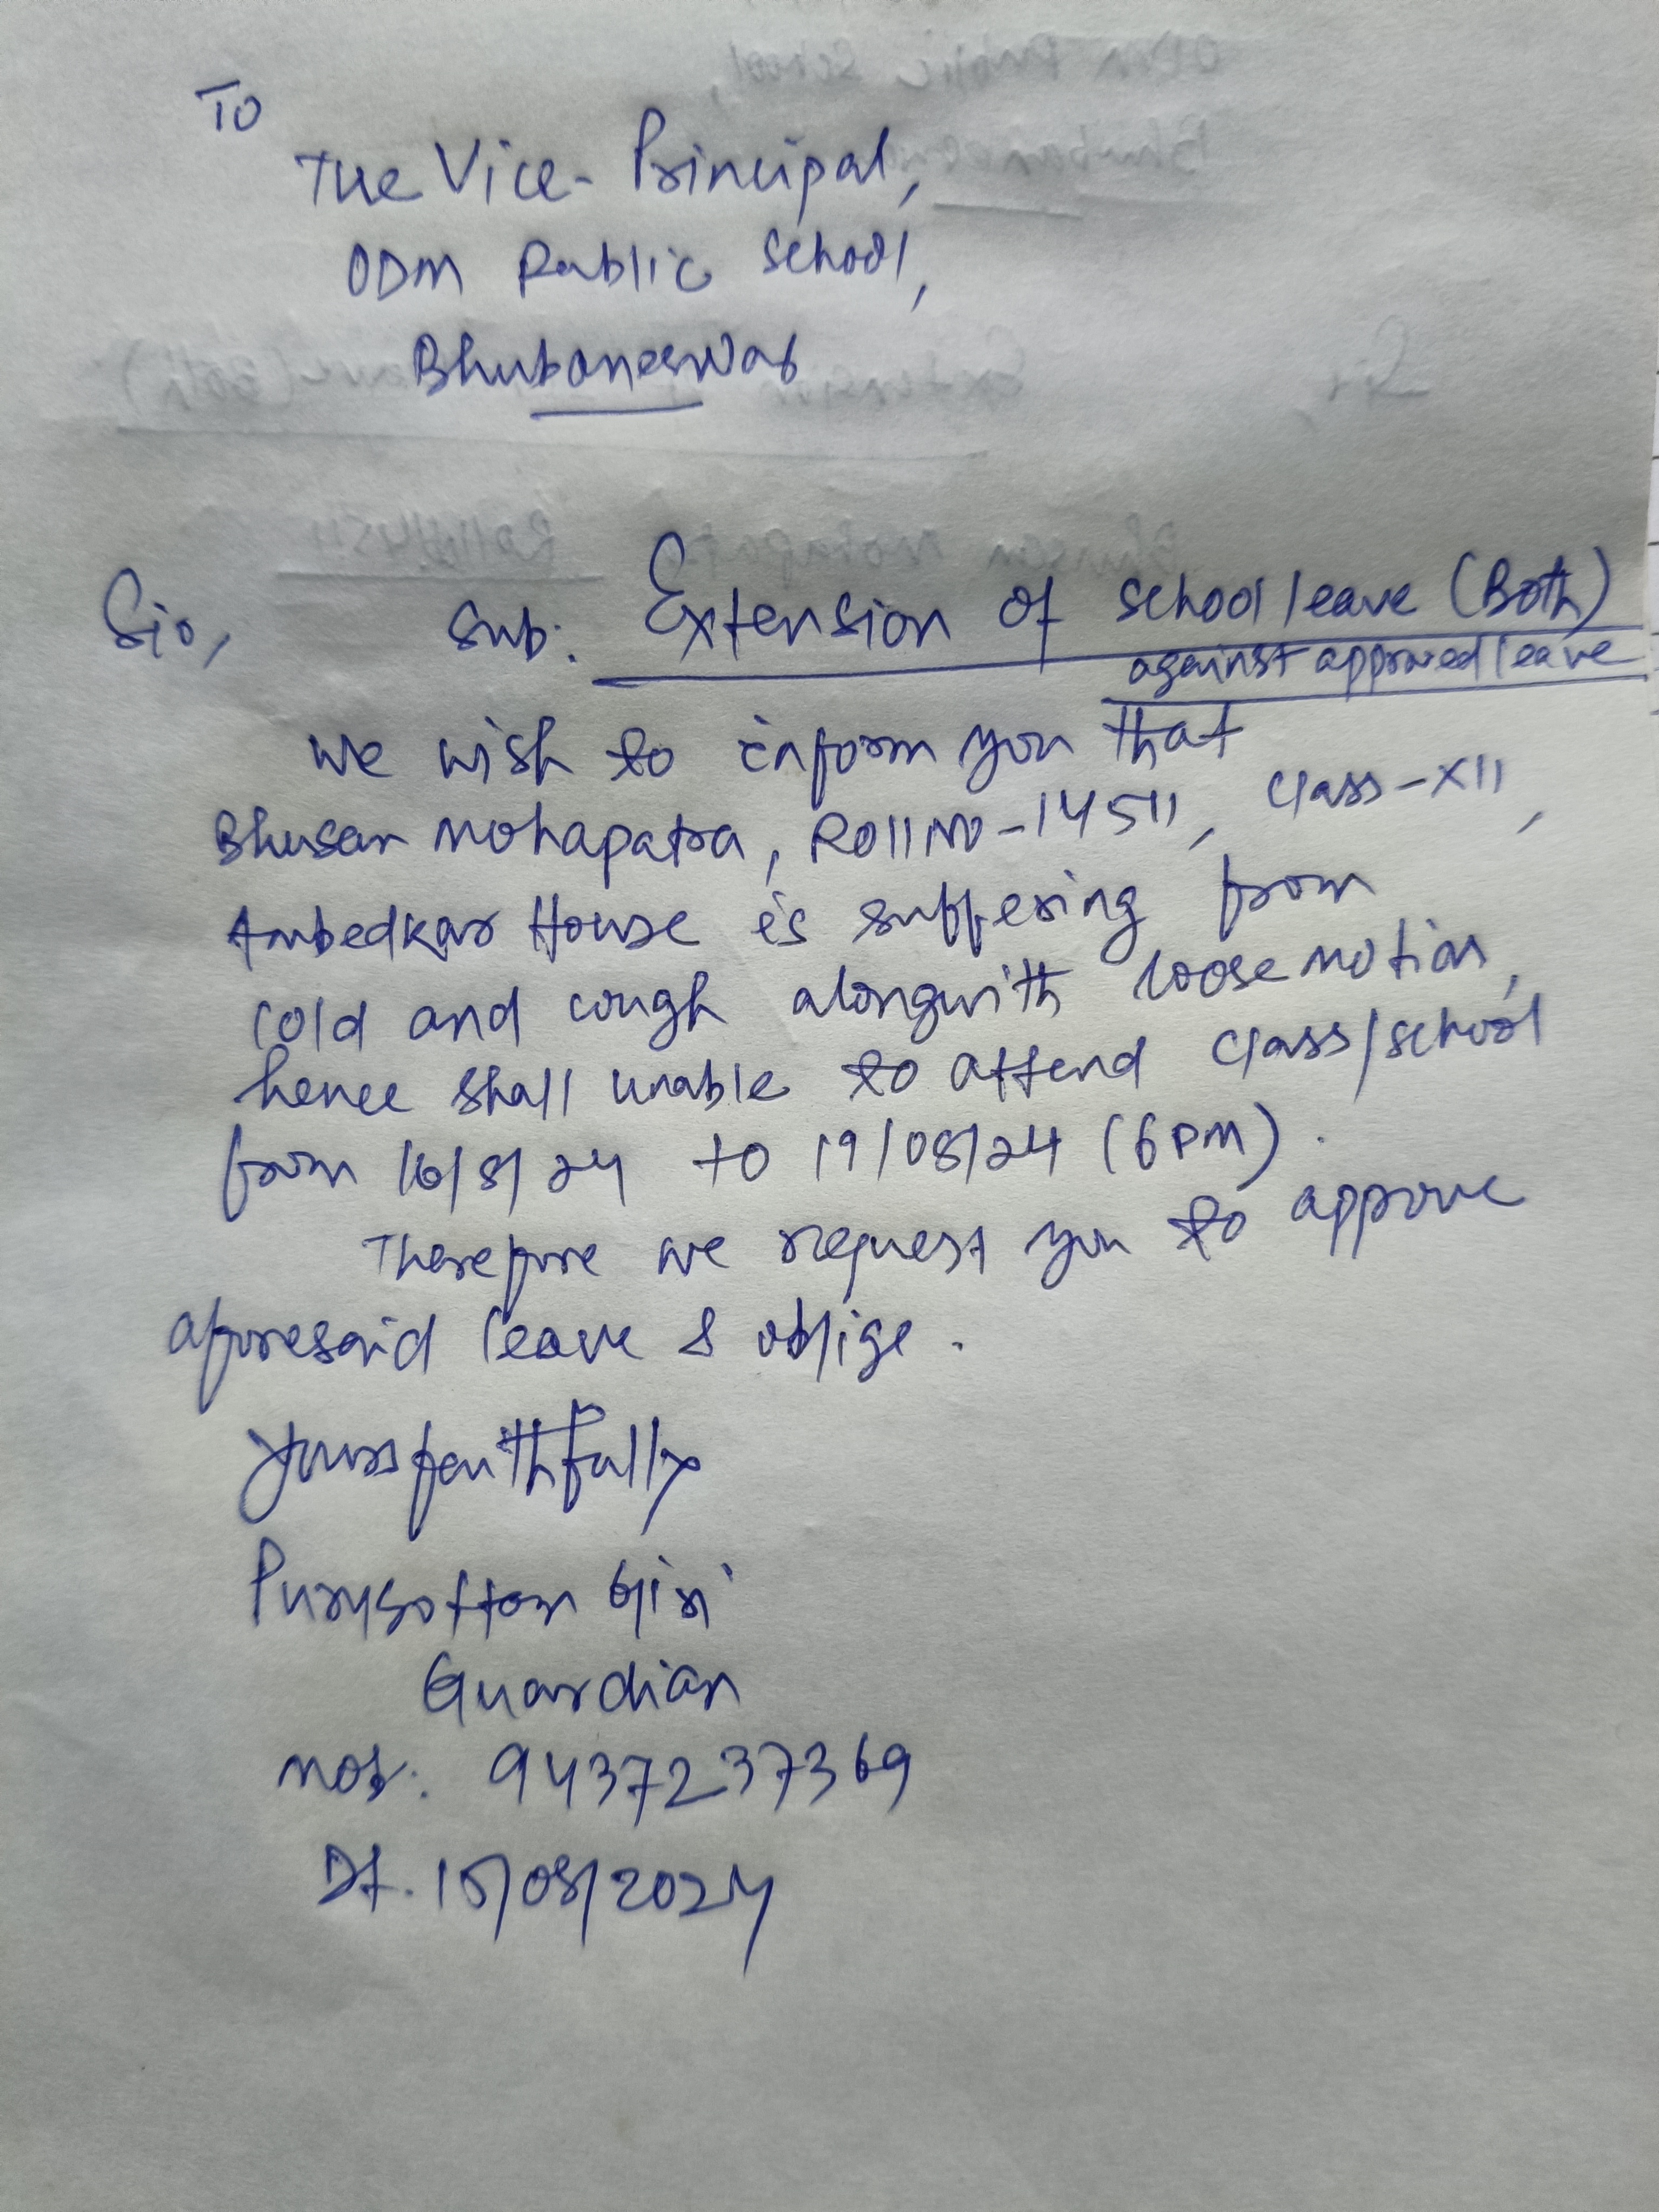 To
The Vice-Principal,
ODM Public School,
Bhubaneswar
Sir,
Sub: Extension of school leave (Both)
against approved leave
We wish to inform you that
Bhusan Mohapatra, Roll No-14511, Class-XII,
Ambedkar House is suffering from
cold and cough alongwith loose motion,
hence shall unable to attend class/school
from 16/8/24 to 19/08/24 (6PM).
Therefore we request you to approve
aforesaid leave & oblige.
Yours faithfully
Purusottam Giri
Guardian
Mob: 9437237369
Dt. 15/08/2024